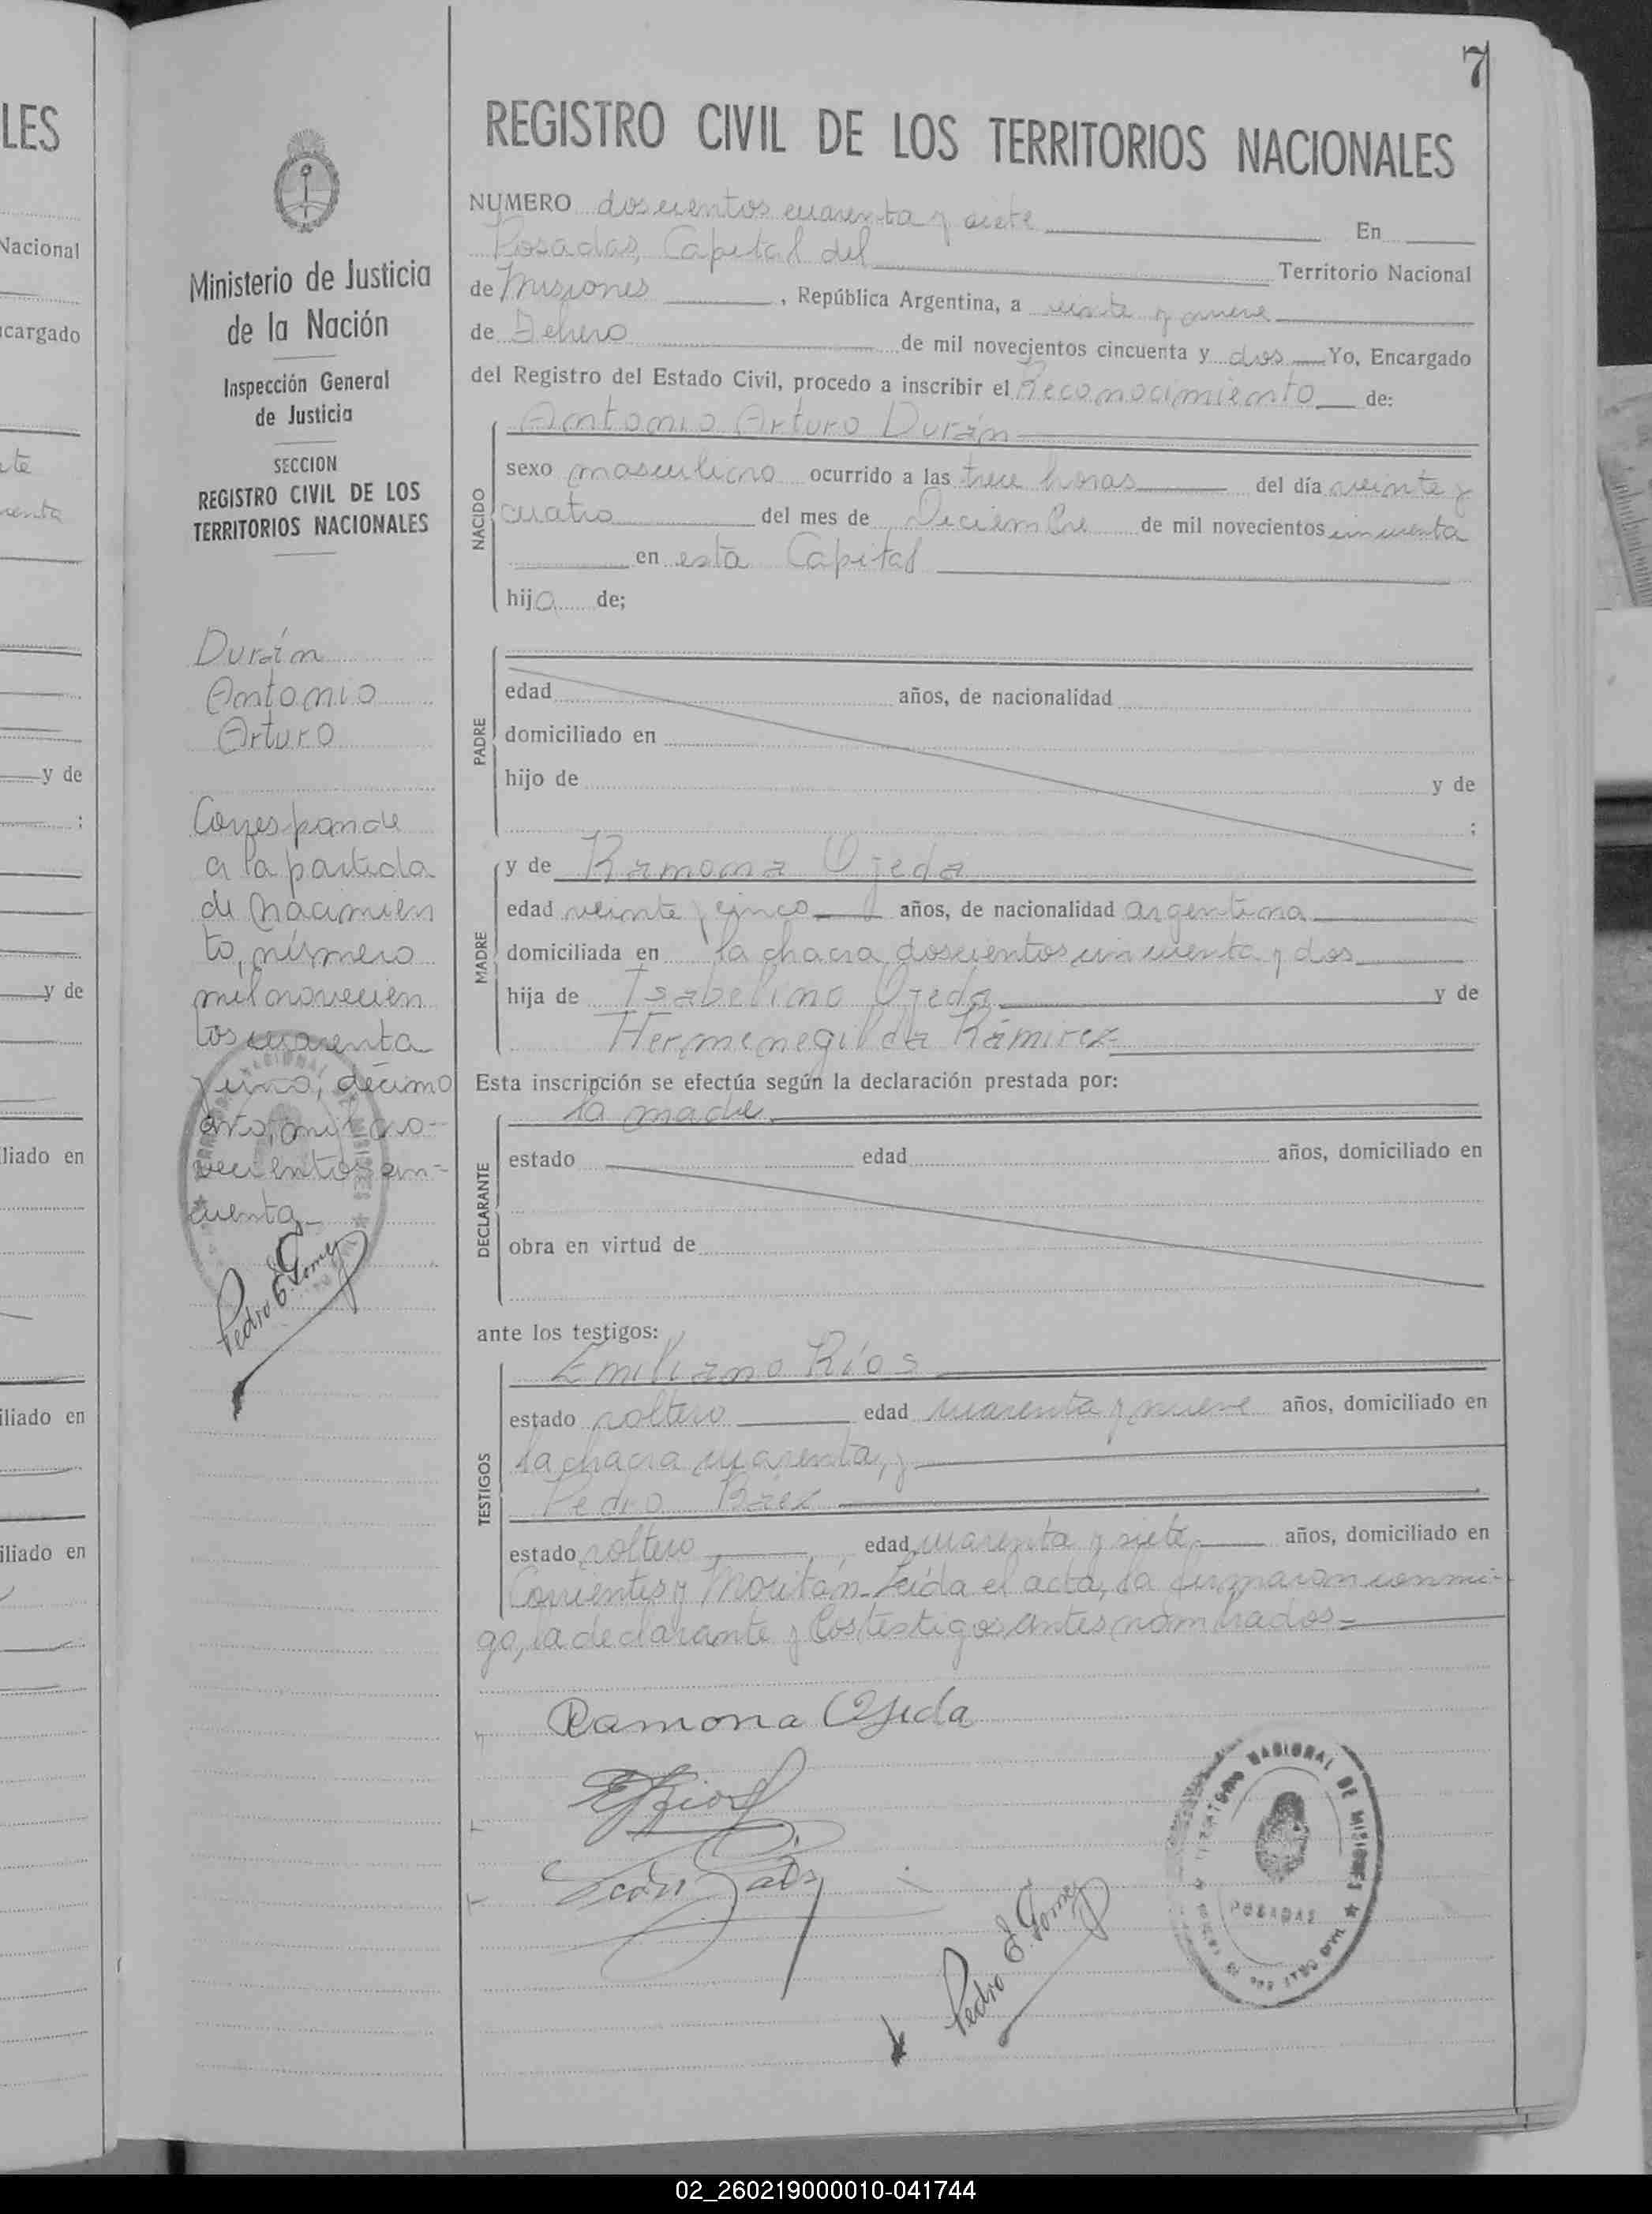 LES
Nacional
cargado
y de
:
y de
liado en
iliado en
iliado en
7
Ministerio de Justicia
de la Nación
Inspección General
de Justicia
SECCION
REGISTRO CIVIL DE LOS
TERRITORIOS NACIONALES
Durán
Antonio
Arturo
Corresponde
a la partida
de nacimien
to, número
mil novecien
tos cuarenta
y uno, décimo
mil no-
vecientos cin-
cuenta
Pedro E. Gomez
REGISTRO CIVIL DE LOS TERRITORIOS NACIONALES
NUMERO doscientos cuarenta y siete En
Posadas, Capital del Territorio Nacional
de Misiones , República Argentina, a veinte y nueve
de Febrero de mil novecientos cincuenta y dos Yo, Encargado
del Registro del Estado Civil, procedo a inscribir el Reconocimiento de:
Antonio Arturo Durán
NACIDO
sexo masculino ocurrido a las trece horas del día veinte y
cuatro del mes de Diciembre de mil novecientos cincuenta
en esta Capital
hijo de;
PADRE
edad años, de nacionalidad
domiciliado en
hijo de y de
;
MADRE
y de Ramona Ojeda
edad veinte y cinco años, de nacionalidad argentina
domiciliada en la chacra doscientos cincuenta y dos
hija de Isabelino Ojeda y de
Hermenegilda Ramirez
Esta inscripción se efectúa según la declaración prestada por:
la madre
DECLARANTE
estado edad años, domiciliado en
obra en virtud de
ante los testigos:
TESTIGOS
Emiliano Ríos
estado soltero edad cuarenta y nueve años, domiciliado en
la chacra cuarenta, y
Pedro Báez
estado soltero edad cuarenta y siete años, domiciliado en
Corrientes y Moritán. Leída el acta, la firmaron conmi-
go, la declarante y los testigos antes nombrados=
Ramona Ojeda
E Rios
Pedro E. Gomez
TERRITORIO NACIONAL DE MISIONES
POSADAS
02_260219000010-041744